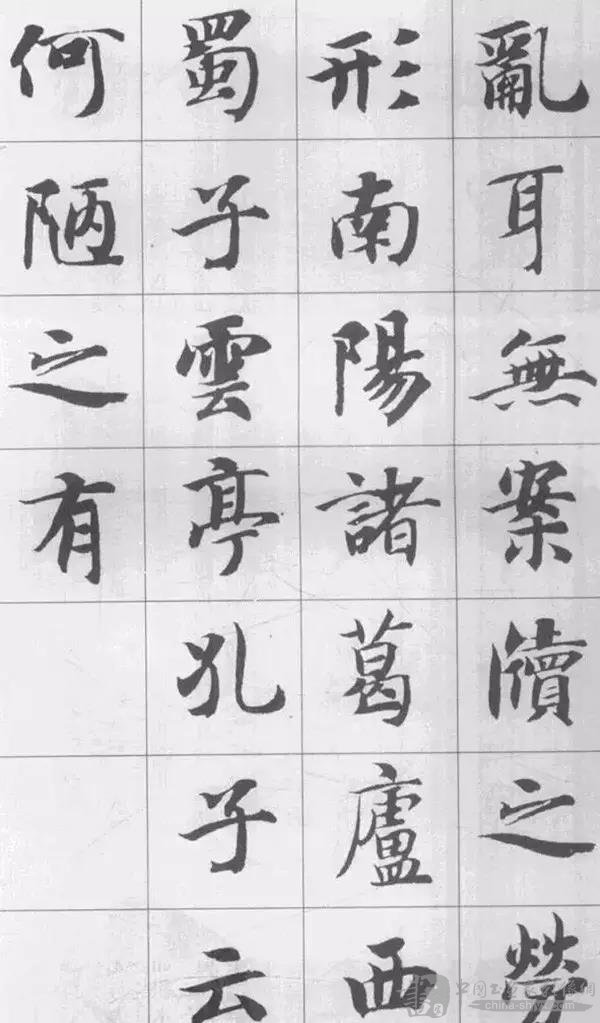 亂耳無案牘之勞
形南陽諸葛廬西
蜀子雲亭孔子云
何陋之有
china-shjy.com